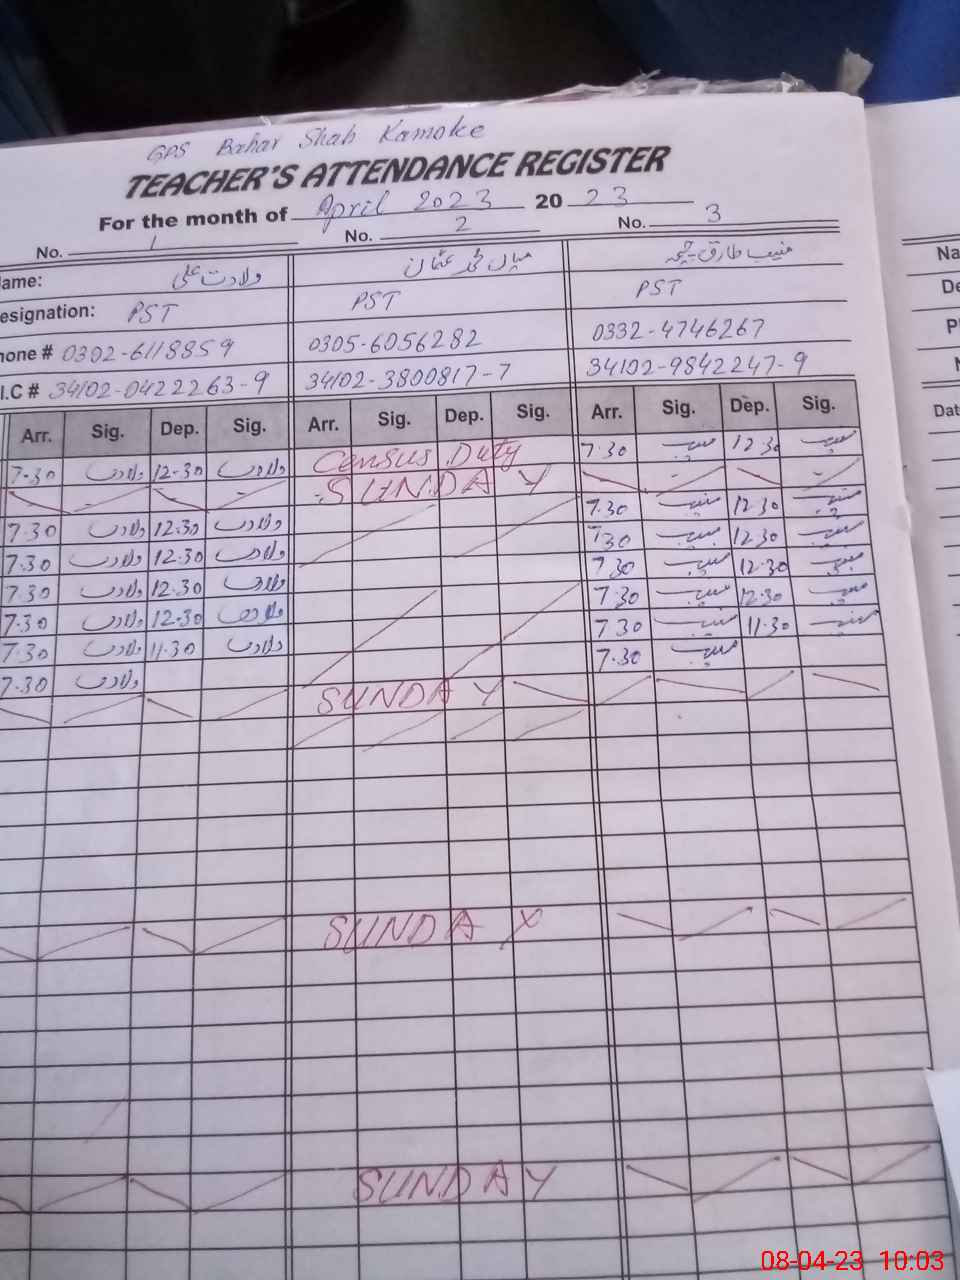 GPS Bahar Shah Kamoke
TEACHER'S ATTENDANCE REGISTER
For the month of April 2023 20 23
No. 1 No. 2 No. 3
ame: ولادت علی میاں محمد عثمان منیب طارق چیمہ Na
esignation: PST PST PST De
hone # 0302-6118859 0305-6056282 0332-4746267
.I.C # 34102-0422263-9 34102-3800817-7 34102-9842247-9
Arr. Sig. Dep. Sig. Arr. Sig. Dep. Sig. Arr. Sig. Dep. Sig. Dat
7-30 ولادت 12-30 ولادت Census Duty 7.30 منیب 12.30 منیب
SUNDAY
7.30 ولادت 12.30 ولادت 7.30 منیب 12.30 منیب
7.30 ولادت 12.30 ولادت 7.30 منیب 12.30 منیب
7.30 ولادت 12.30 ولادت 7.30 منیب 12.30 منیب
7.30 ولادت 12.30 ولادت 7.30 منیب 12.30 منیب
7.30 ولادت 11.30 ولادت 7.30 منیب 11.30 منیب
7.30 ولادت 7.30 منیب
SUNDAY
SUNDAY
SUNDAY
08-04-23 10:03